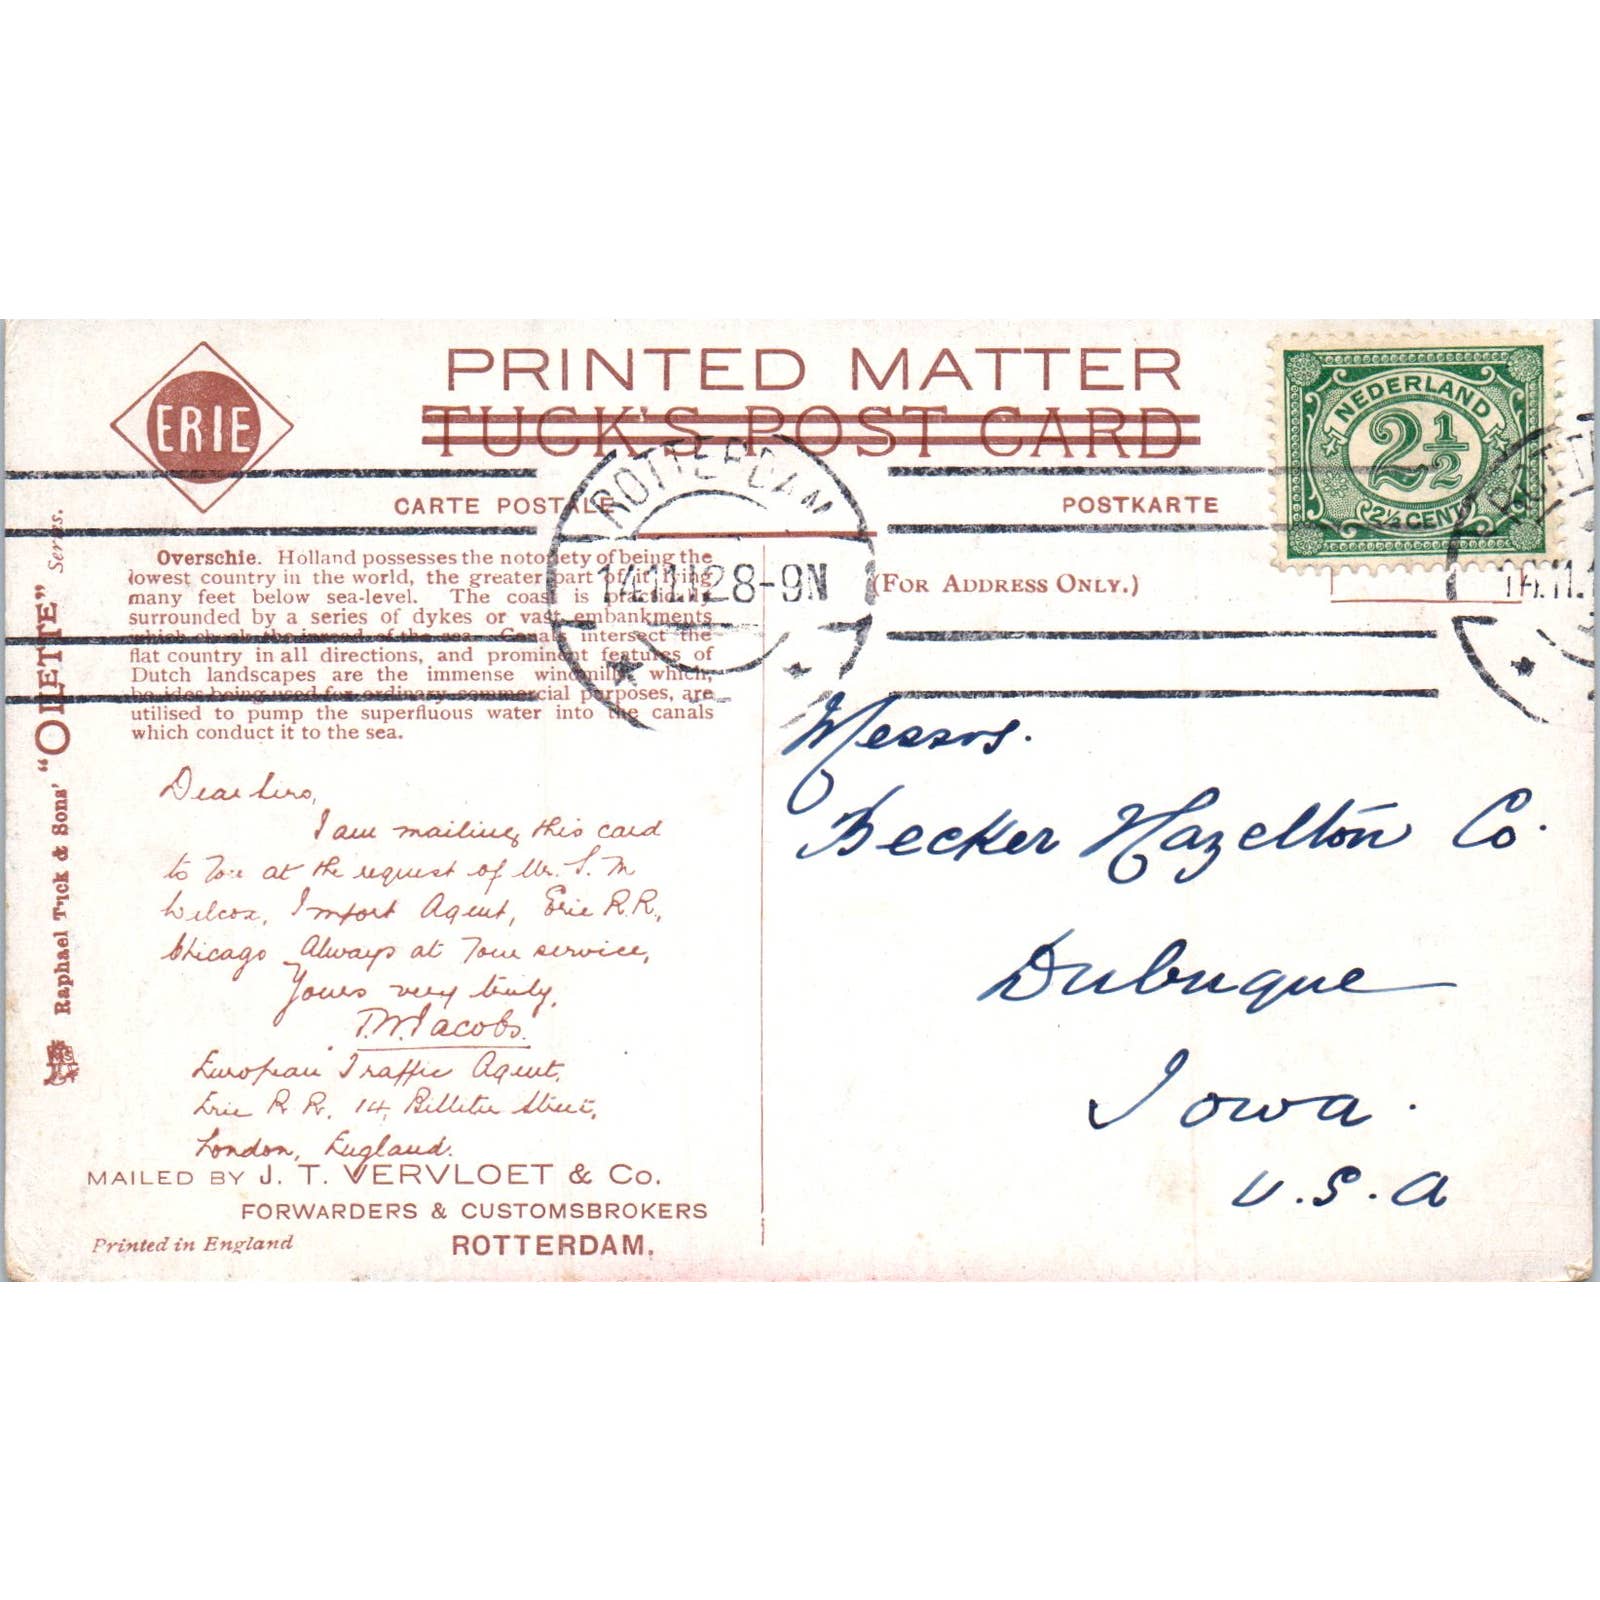 PRINTED MATTER
TUCK'S POST CARD
ERIE
CARTE POSTALE
POSTKARTE
NEDERLAND
2 1/2
2½ CENT
ROTTERDAM
14.11.12 8-9N
(FOR ADDRESS ONLY.)
14.11.1
Overschie. Holland possesses the notoriety of being the
lowest country in the world, the greater part of it lying
many feet below sea-level. The coast is practically
surrounded by a series of dykes or vast embankments
which check the inroad of the sea. Canals intersect the
flat country in all directions, and prominent features of
Dutch landscapes are the immense windmills which,
besides being used for ordinary commercial purposes, are
utilised to pump the superfluous water into the canals
which conduct it to the sea.
Raphael Tuck & Sons' "OILETTE" Series.
Dear Sirs,
I am mailing this card
to You at the request of Mr. S. M
Wilcox, Import Agent, Erie R.R.,
Chicago Always at Your service,
Yours very truly,
T.W. Jacobs.
European Traffic Agent,
Erie R R, 14, Billiter Street,
London, England.
MAILED BY J. T. VERVLOET & Co.
FORWARDERS & CUSTOMSBROKERS
Printed in England
ROTTERDAM.
Messrs.
Becker Hazelton Co.
Dubuque
Iowa.
U.S.A